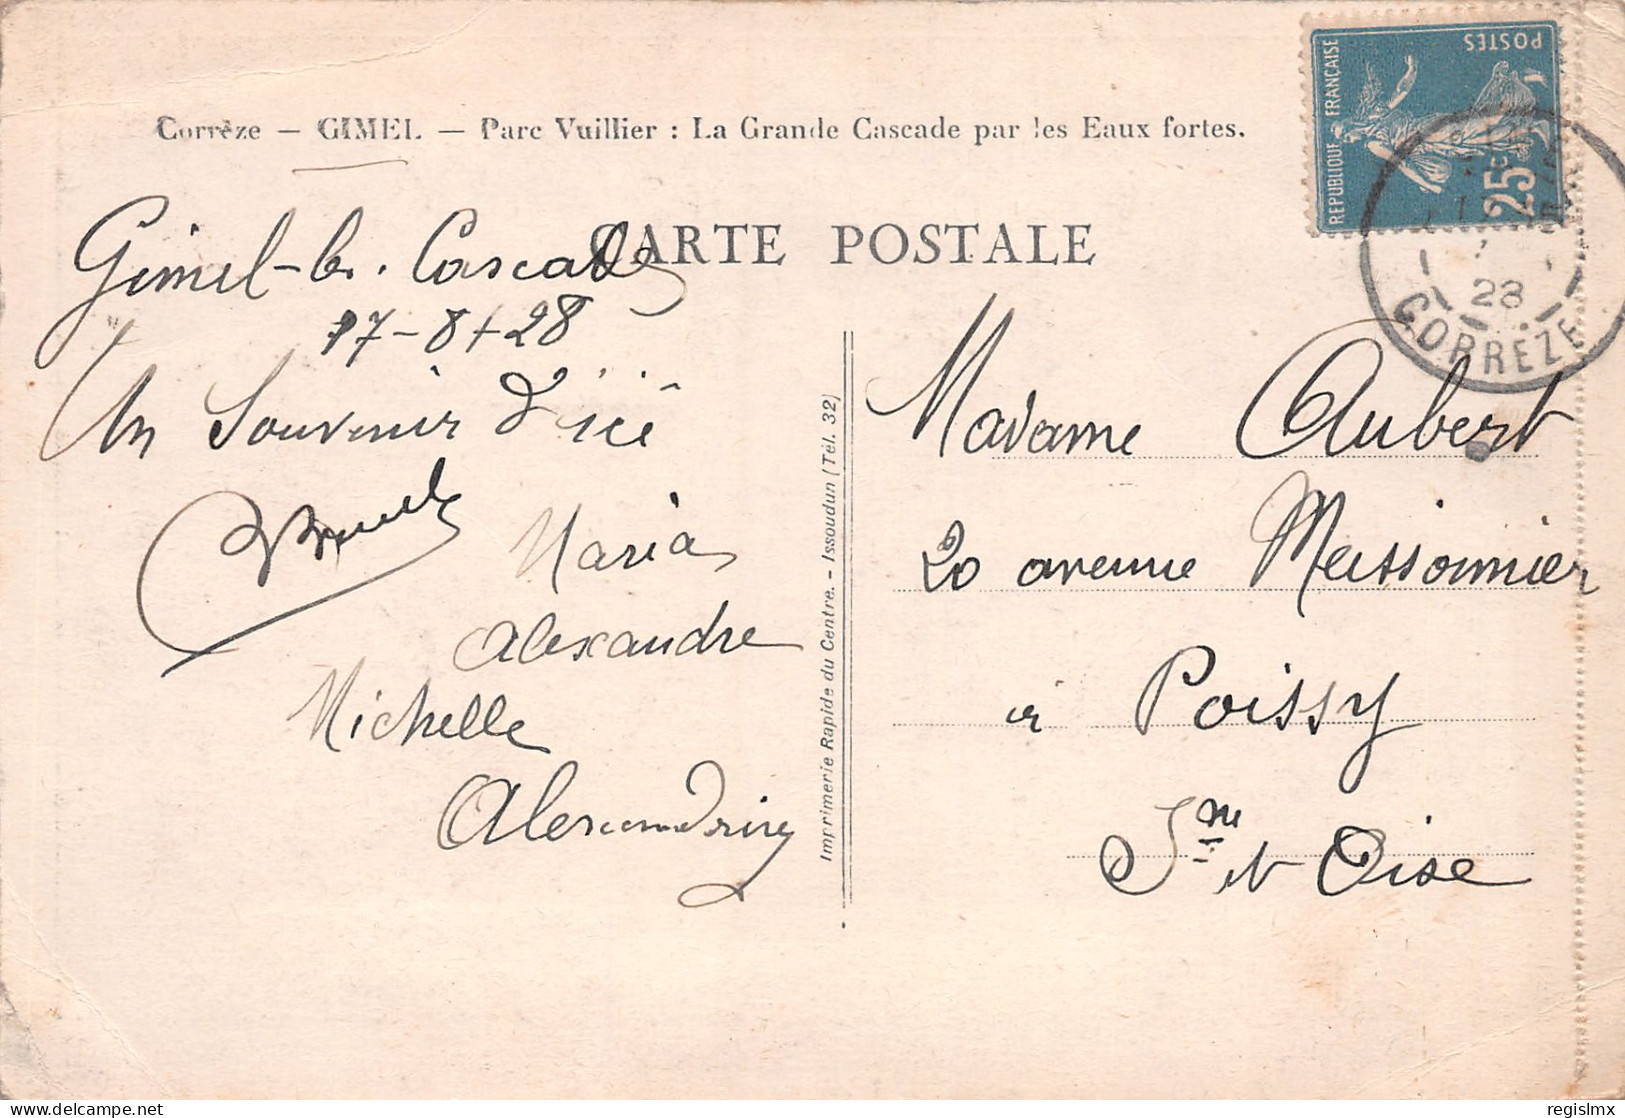 Corrèze — GIMEL — Parc Vuillier : La Grande Cascade par les Eaux fortes.
CARTE POSTALE
Gimel-les-Cascades
17-8-28
Un Souvenir d'ici
Maria
Alexandre
Michelle
Alexandrine
Imprimerie Rapide du Centre. - Issoudun (Tél. 32)
REPUBLIQUE FRANÇAISE
POSTES
25c
28
CORREZE
Madame Aubert
20 avenue Meissonnier
à Poissy
Sne et Oise
delcampe.net
regislmx